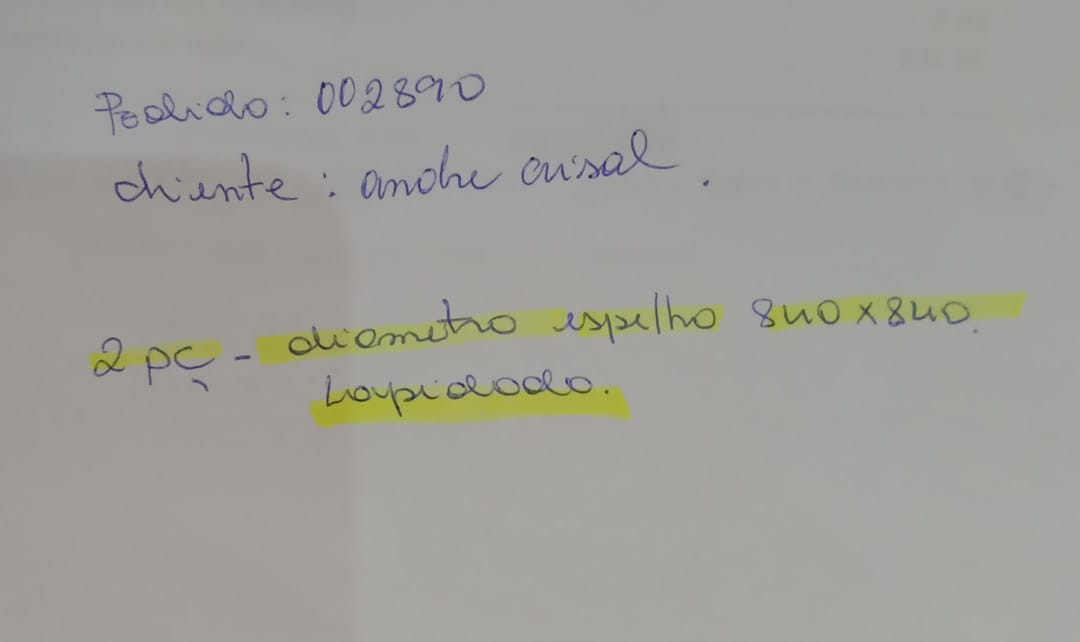 Pedido: 002890
cliente: andre crisal.
2 pç - diametro espelho 840x840.
Lapidado.